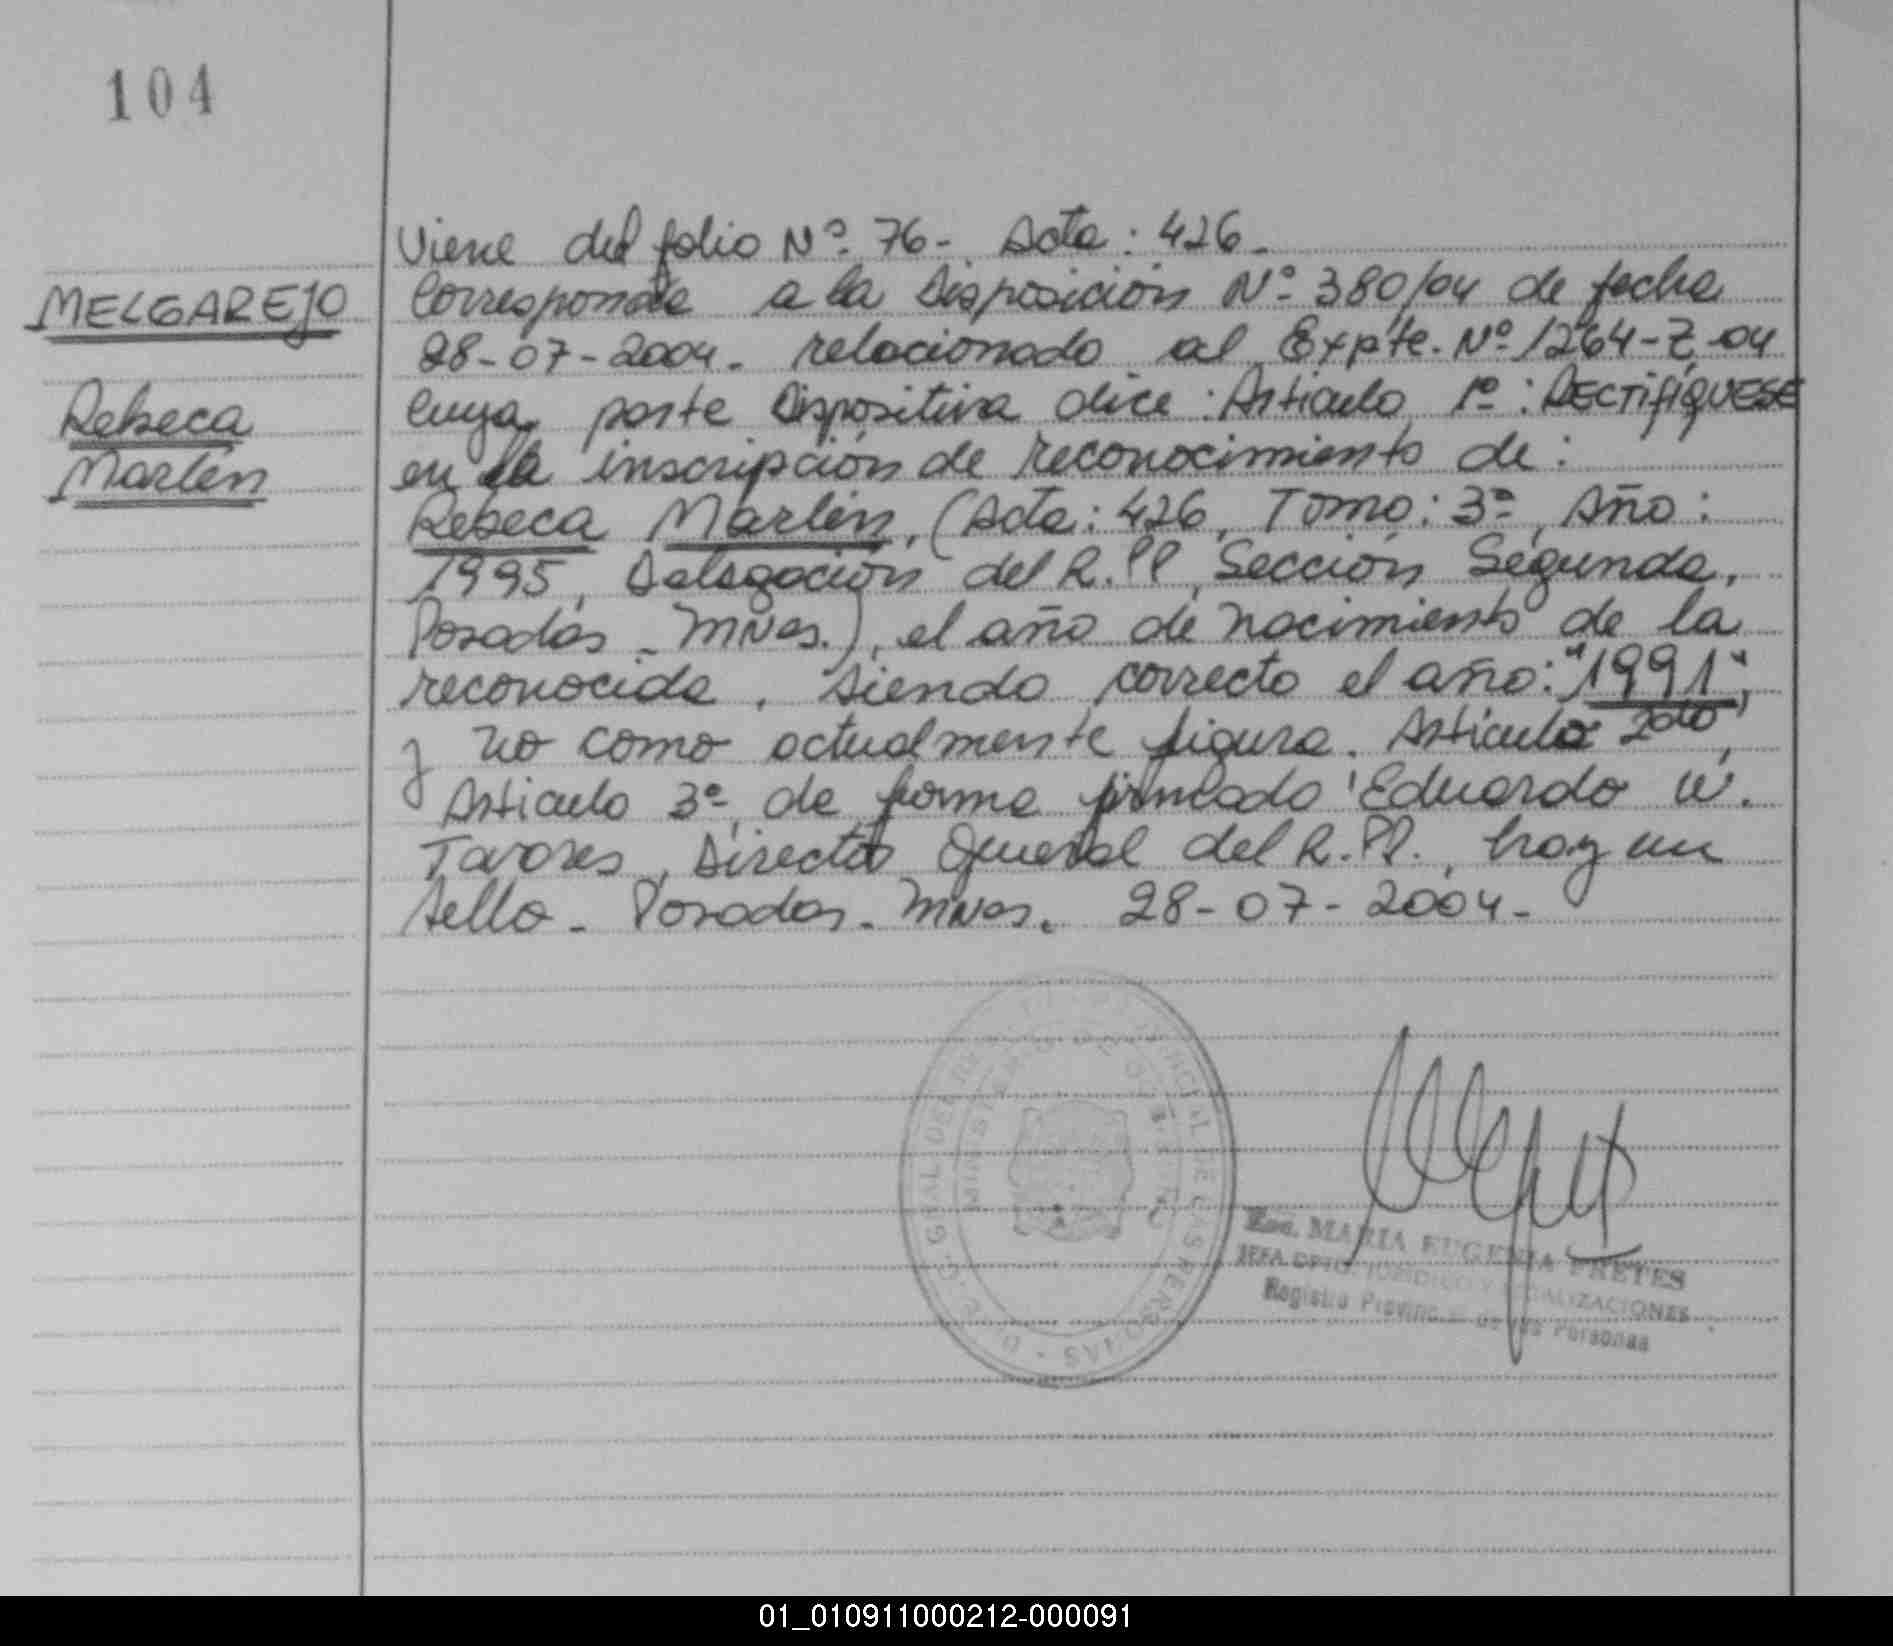 104
MELGAREJO
Rebeca
Marlen
Viene del folio Nº 76- Acta: 426-
Corresponde a la Disposición Nº 380/04 de fecha
28-07-2004. relacionado al Expte. Nº 1264-Z-04
cuya parte Dispositiva dice: Articulo 1º: RECTIFIQUESE
en la inscripción de reconocimiento de:
Rebeca Marlen, (Acta: 426, Tomo: 3º, Año:
1995, Delegación del R.PP, Sección Segunda,
Posadas - Mnes.), el año de nacimiento de la
reconocida. siendo correcto el año: "1991",
y no como actualmente figura. Articulo 2do,
Articulo 3º, de forma firmado Eduardo W.
Tavares, Director General del R.PP., hay un
sello - Posadas - Mnes. 28-07-2004-
MINISTERIO DE GOBIERNO
DIREC. GRAL DEL REG. PROVINCIAL DE LAS PERSONAS -
Esc. MARIA EUGENIA PRETES
JEFA DPTO. JURIDICO Y LEGALIZACIONES
Registro Provincial de las Personas
01_010911000212-000091